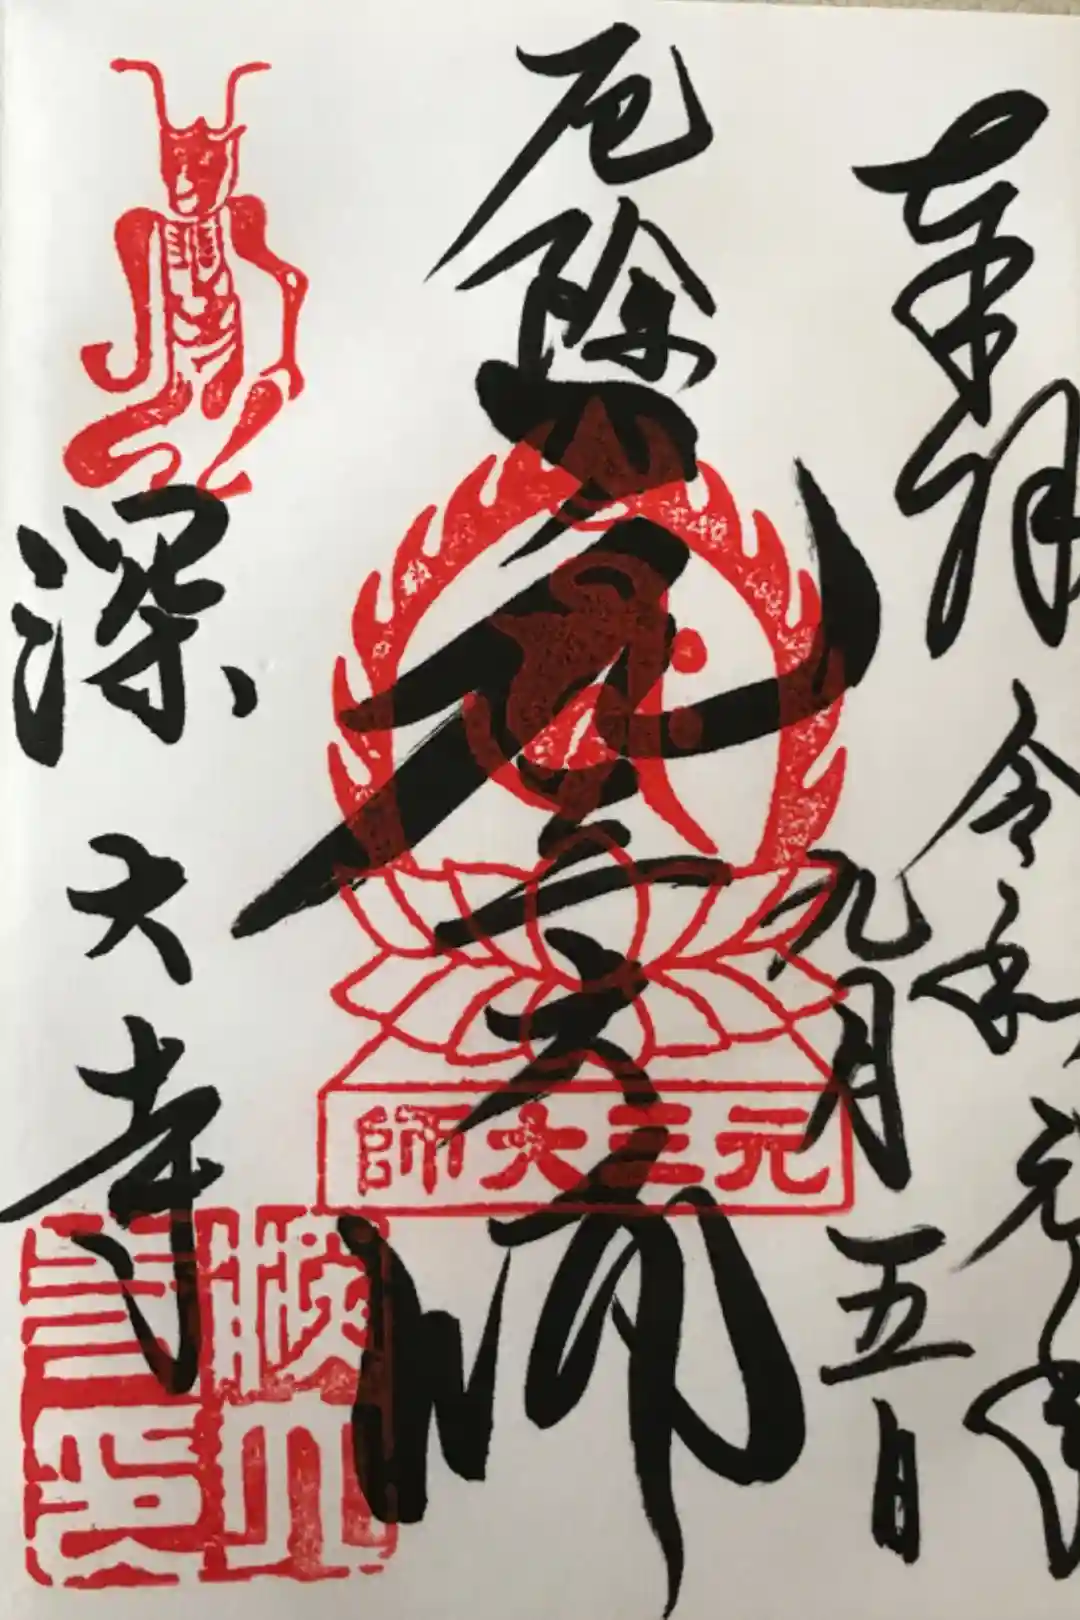 奉拝
令和元年
九月五日
厄除
元三大師
元三大師
深大寺
深大寺印